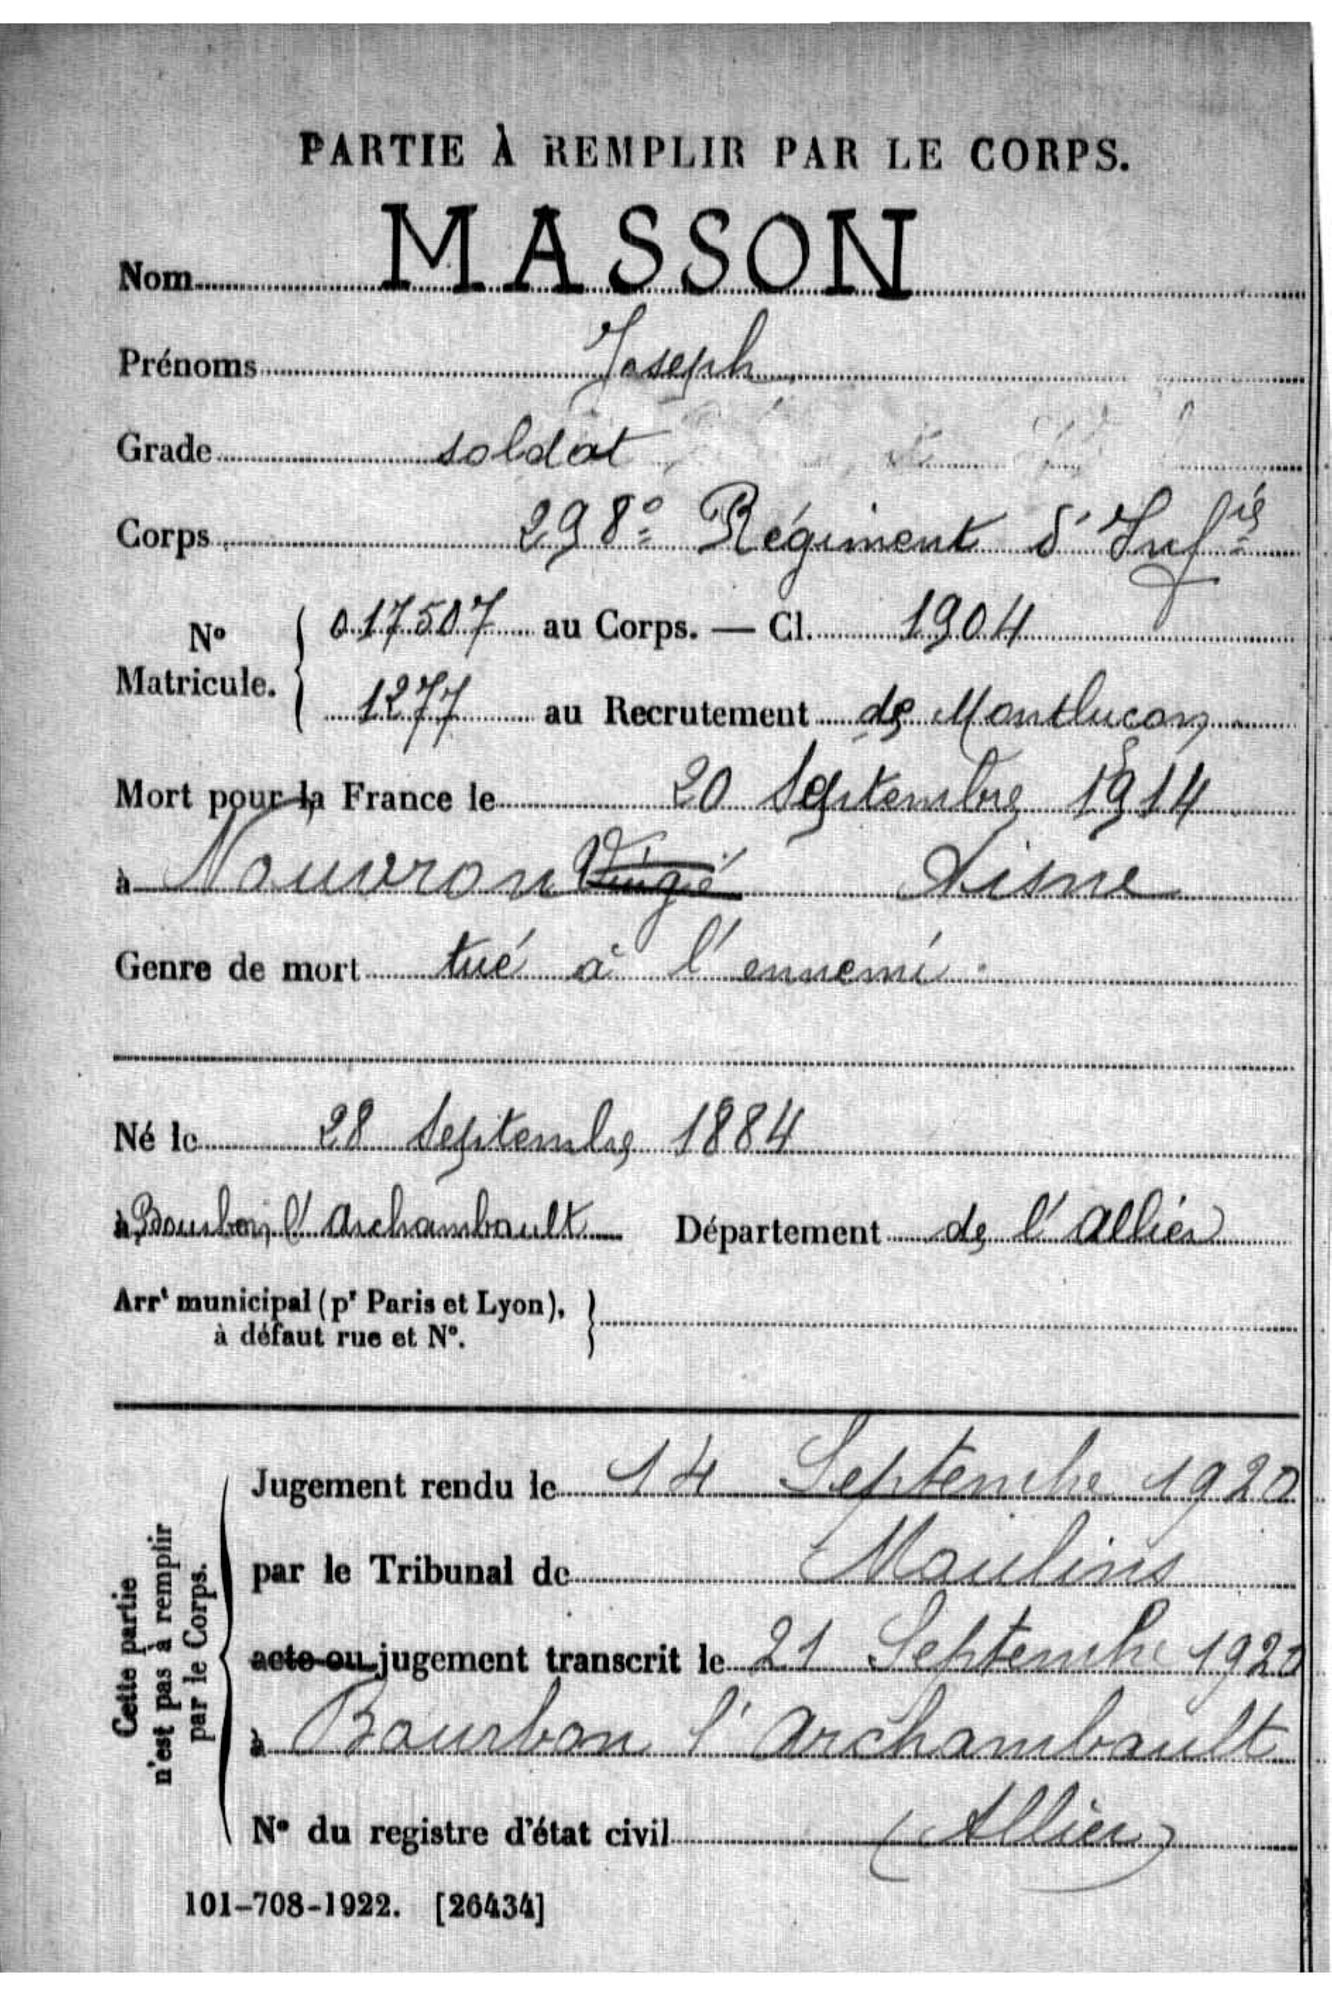 PARTIE À REMPLIR PAR LE CORPS.
Nom MASSON
Prénoms Joseph
Grade soldat
Corps 298e Régiment d'Infie
No Matricule. { 017507 au Corps. — Cl. 1904
1277 au Recrutement de Montluçon
Mort pour la France le 20 Septembre 1914
à Nouvron Vingré Aisne
Genre de mort tué à l'ennemi.
Né le 28 Septembre 1884
à Bourbon l'Archambault Département de l'Allier
Arrt municipal (pr Paris et Lyon), }
à défaut rue et No.
Cette partie
n'est pas à remplir
par le Corps.
Jugement rendu le 14 Septembre 1920
par le Tribunal de Moulins
acte ou jugement transcrit le 21 Septembre 1920
à Bourbon l'Archambault
No du registre d'état civil (Allier)
101-708-1922. [26434]